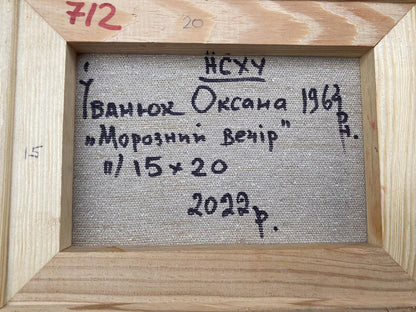 712
20
НСХУ
Іванюк Оксана 1962 р.н.
„Морозний вечір"
п/ 15×20
15
2022 р.